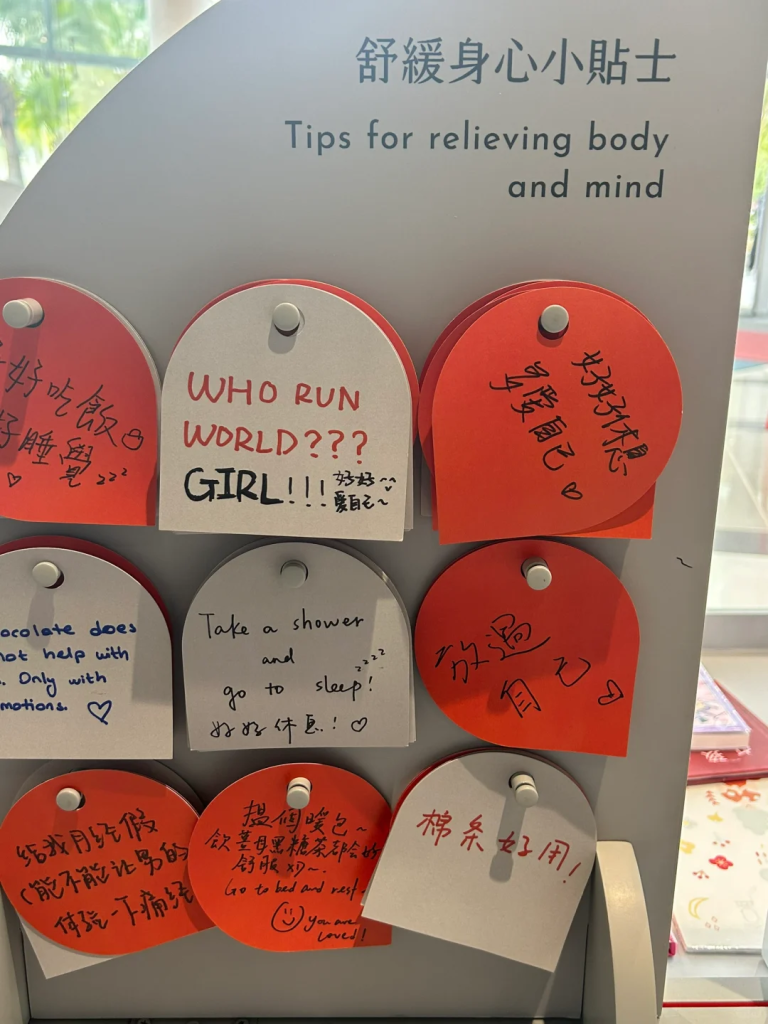 舒緩身心小貼士
Tips for relieving body
and mind
好吃飯
好睡覺 zzz
WHO RUN
WORLD???
GIRL!!! 好好
愛自己~
好好休息
多愛自己
ocolate does
not help with
. Only with
motions.
Take a shower
and
go to sleep! zzzz
好好休息!
放過
自己
给我月经假
(能不能让男的
体验一下痛经
搵個暖包~
飲薑母黑糖茶都会好
舒服
Go to bed and rest.
you are
loved!
棉条好用!